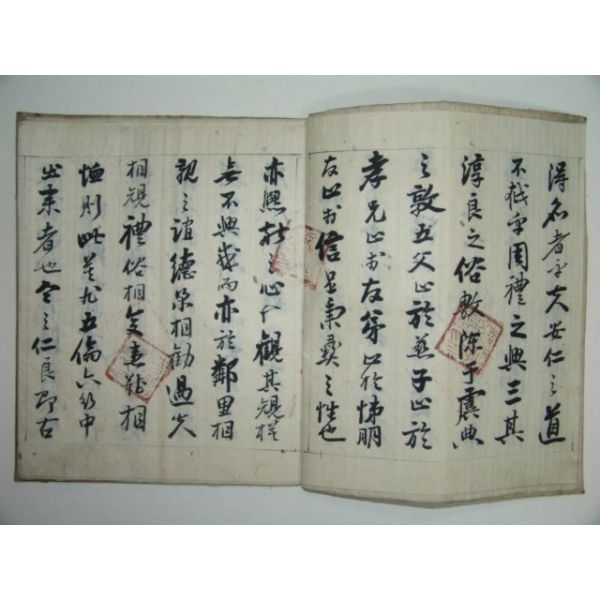 得名者矣安仁之道
不越乎周禮之典三其
淳良之俗敷陳于虞典
之敦五父止於慈子止於
孝兄止於友弟止於悌朋
友止於信是秉彝之性也
亦之心觀其規模
無不興感而亦於鄰里相
親之誼德業相勸過失
相規禮俗相交患難相
恤則此五倫六行中
出來者也今之仁良即古